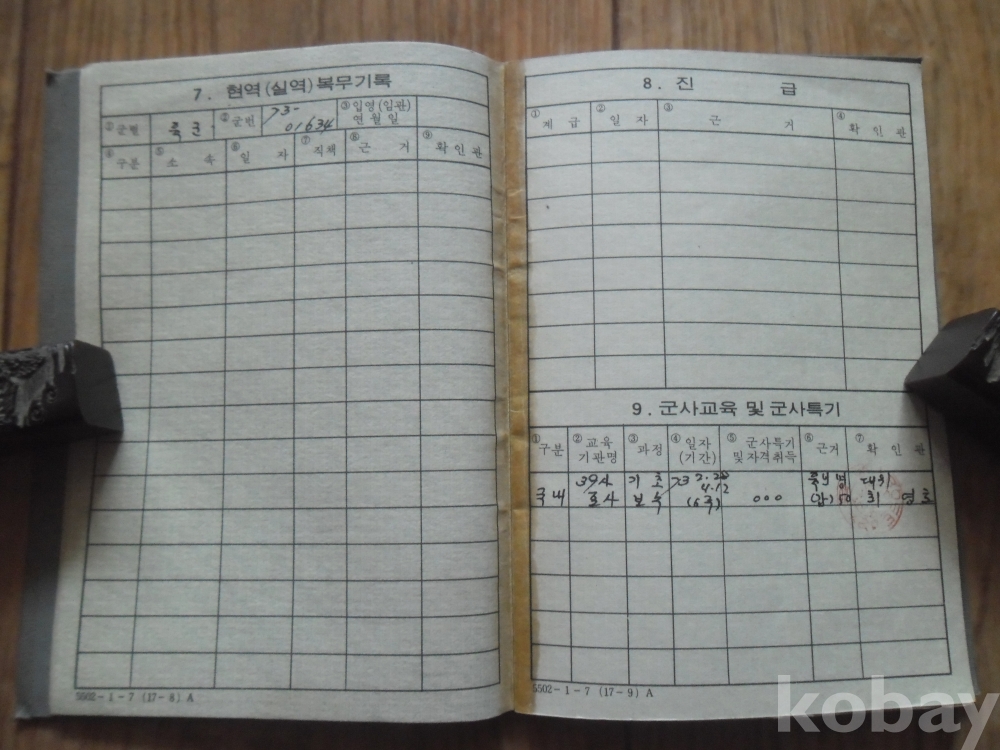 7. 현역(실역)복무기록
①군별 육군 ②군번 73-
01634 ③입영(임관)
연월일
④구분 ⑤소 속 ⑥일 자 ⑦직책 ⑧근 거 ⑨확인관
5502-1-7 (17-8) A
8. 진 급
①계 급 ②일 자 ③근 거 ④확 인 관
9. 군사교육 및 군사특기
①구분 ②교육
기관명 ③과정 ④일자
(기간) ⑤군사특기
및자격취득 ⑥근거 ⑦확 인 관
국내 39사 기초 73
보수 (6주) 000
5502-1-7 (17-9) A
kobay